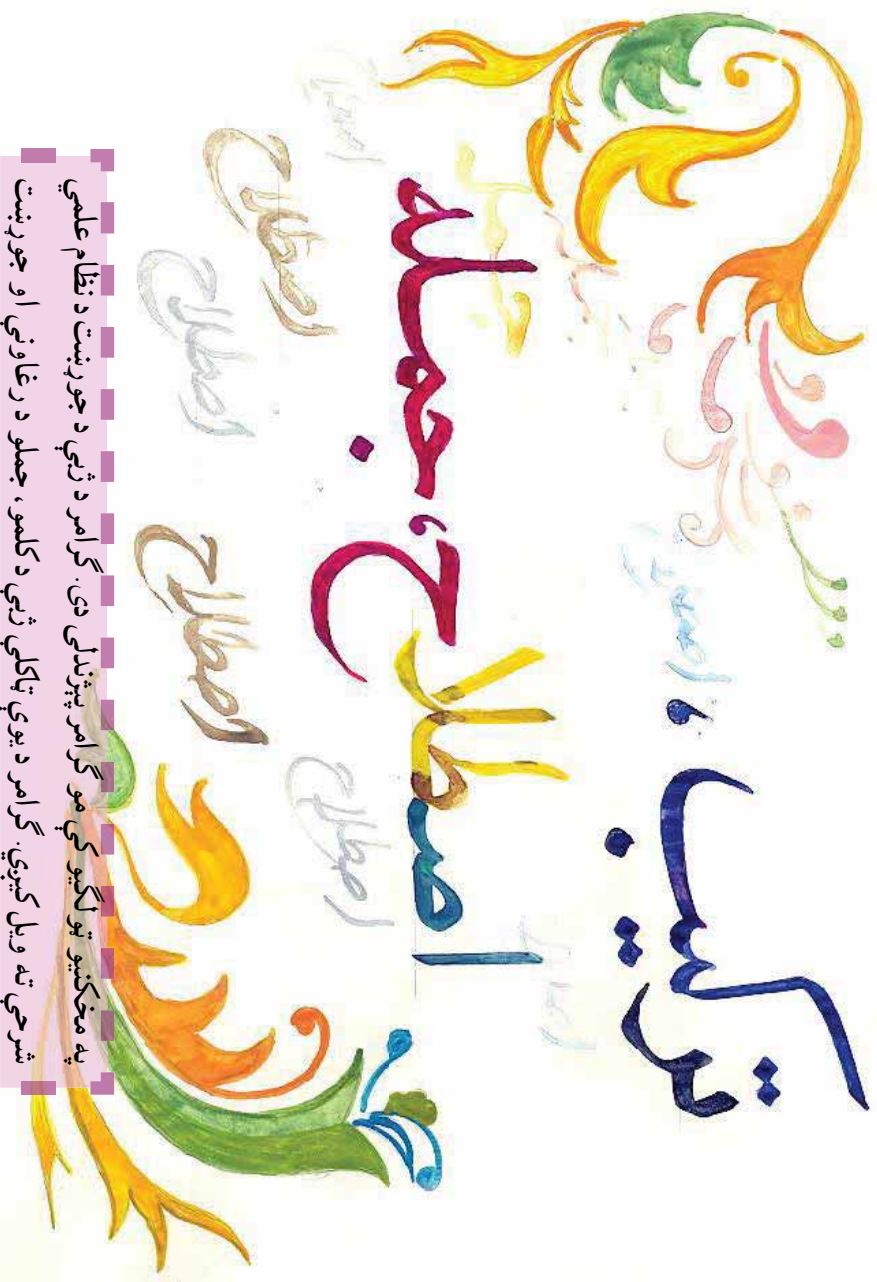 ترکیب ،
اصطلاح، جمله
اصطلاح
اصطلاح
اصطلاح
اصطلاح
په مخکنیو ټولګیو کې مو ګرامر پېژندلی دی. ګرامر د ژبې د جوړښت د نظام علمي
شرحې ته ویل کیږي. ګرامر د یوې ټاکلې ژبې د کلمو، جملو د رغاونې او جوړښت